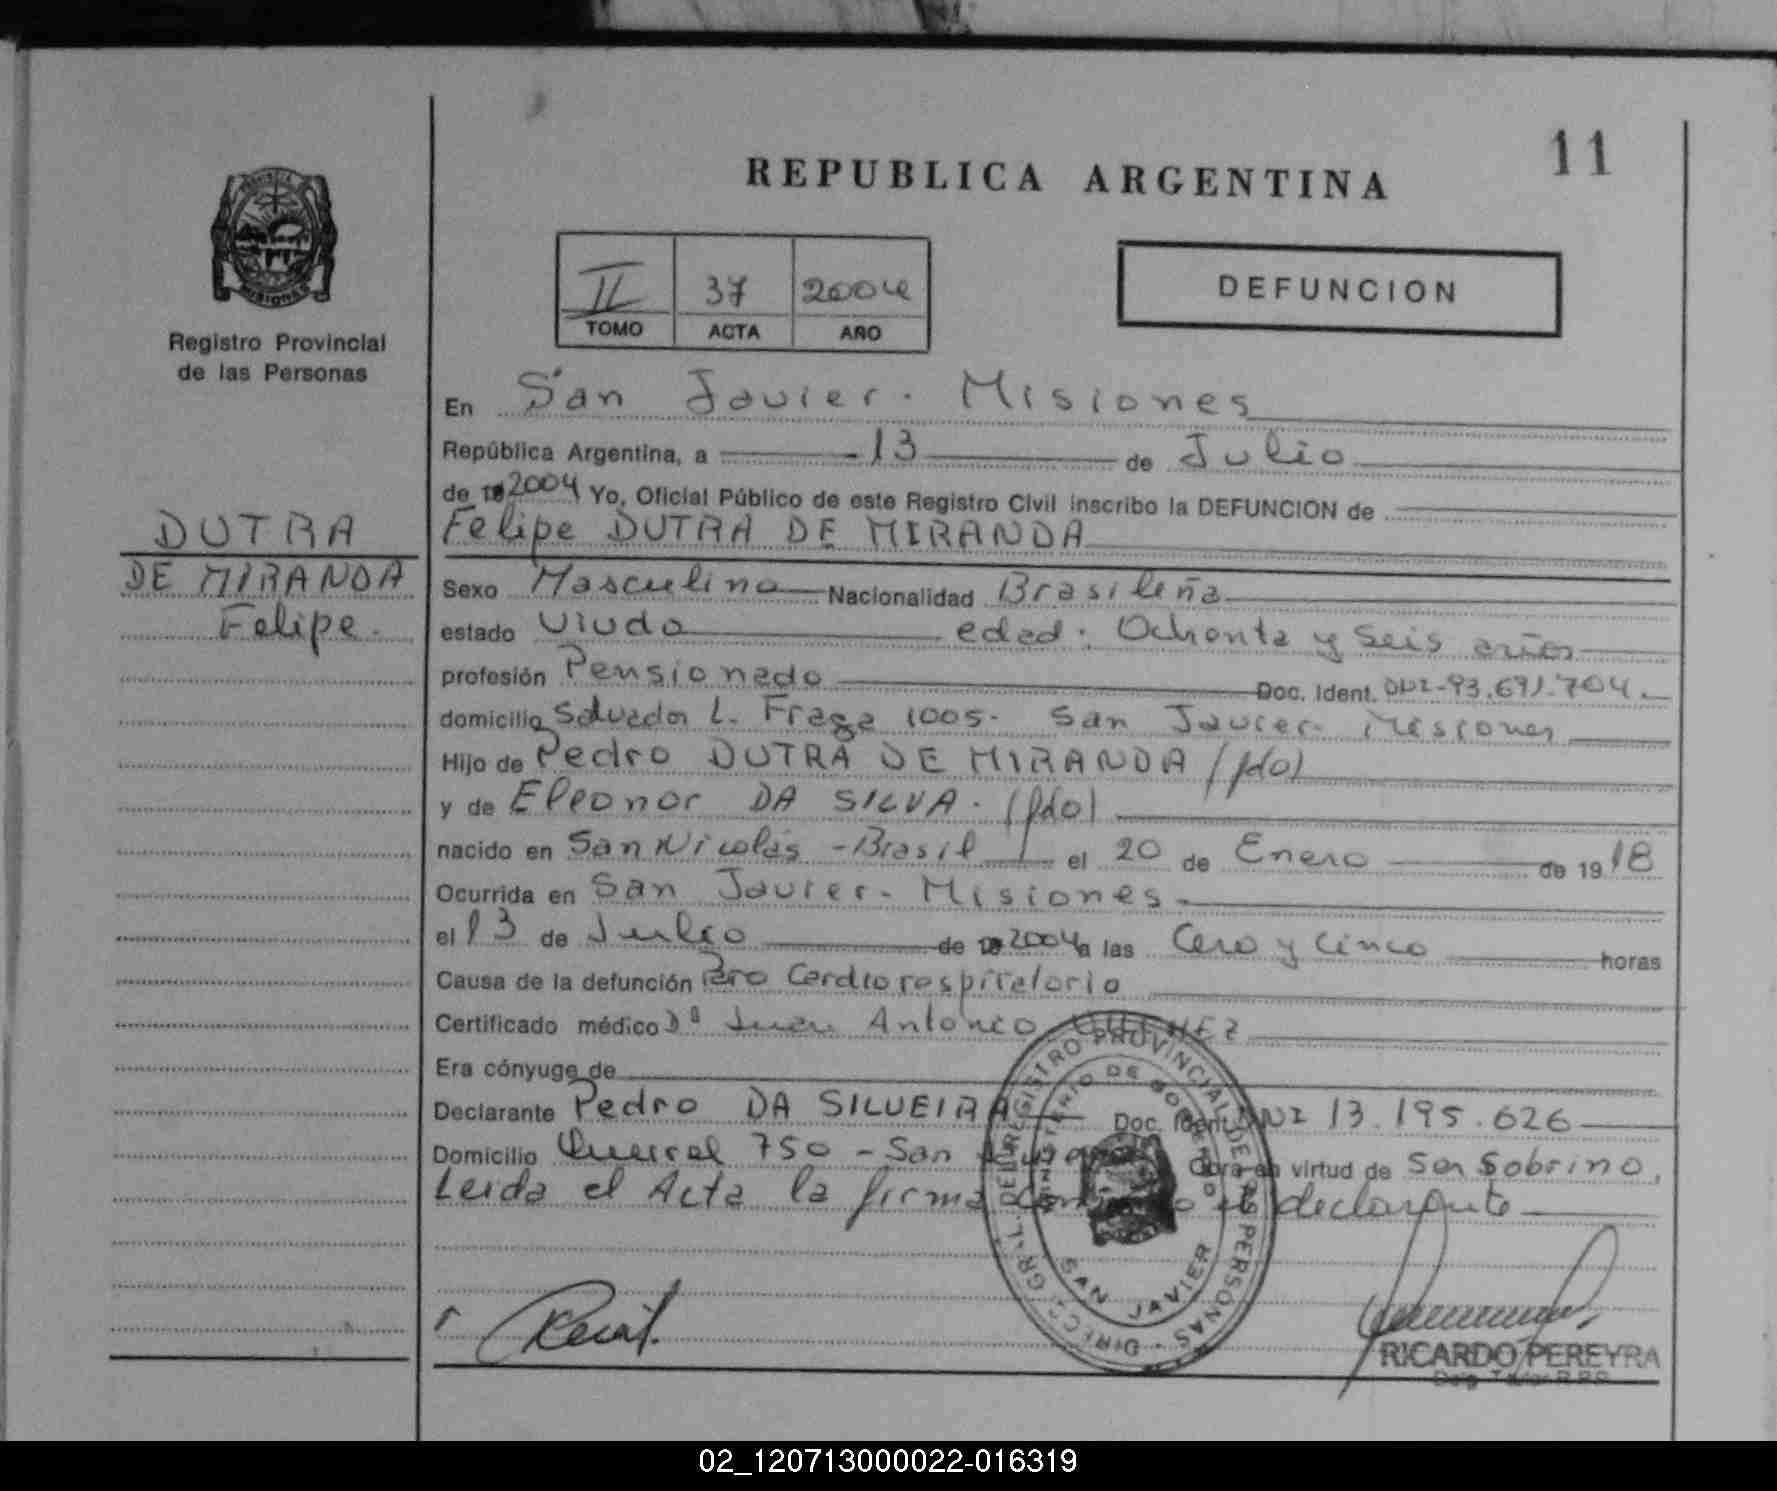 11
REPUBLICA ARGENTINA
MISIONES
Registro Provincial
de las Personas
II 37 2004
TOMO ACTA AÑO
DEFUNCION
En San Javier - Misiones
República Argentina, a 13 de Julio
de 19 2004 Yo, Oficial Público de este Registro Civil inscribo la DEFUNCION de
DUTRA
DE MIRANDA
Felipe.
Felipe DUTRA DE MIRANDA
Sexo Masculino Nacionalidad Brasileña
estado Viudo edad: Ochenta y Seis años
profesión Pensionado Doc. Ident. DNI-93.691.704.
domicilio Salvador L. Fraga 1005- San Javier- Misiones
Hijo de Pedro DUTRA DE MIRANDA (fdo)
y de Eleonor DA SILVA. (fdo)
nacido en San Nicolás - Brasil el 20 de Enero de 19 18
Ocurrida en San Javier - Misiones
el 13 de Julio de 19 2004 a las Cero y Cinco horas
Causa de la defunción Paro Cardiorespiratorio
Certificado médico Dº Juan Antonio
Era cónyuge de
Declarante Pedro DA SILVEIRA Doc. Ident. DNI 13.195.626
Domicilio 750 - San Javier Obra en virtud de Ser Sobrino,
Leida el Acta la firma conmigo el declarante
DIRECC. GRAL. DEL REGISTRO PROVINCIAL DE LAS PERSONAS
MINISTERIO DE GOBIERNO
SAN JAVIER
RICARDO PEREYRA
02_120713000022-016319